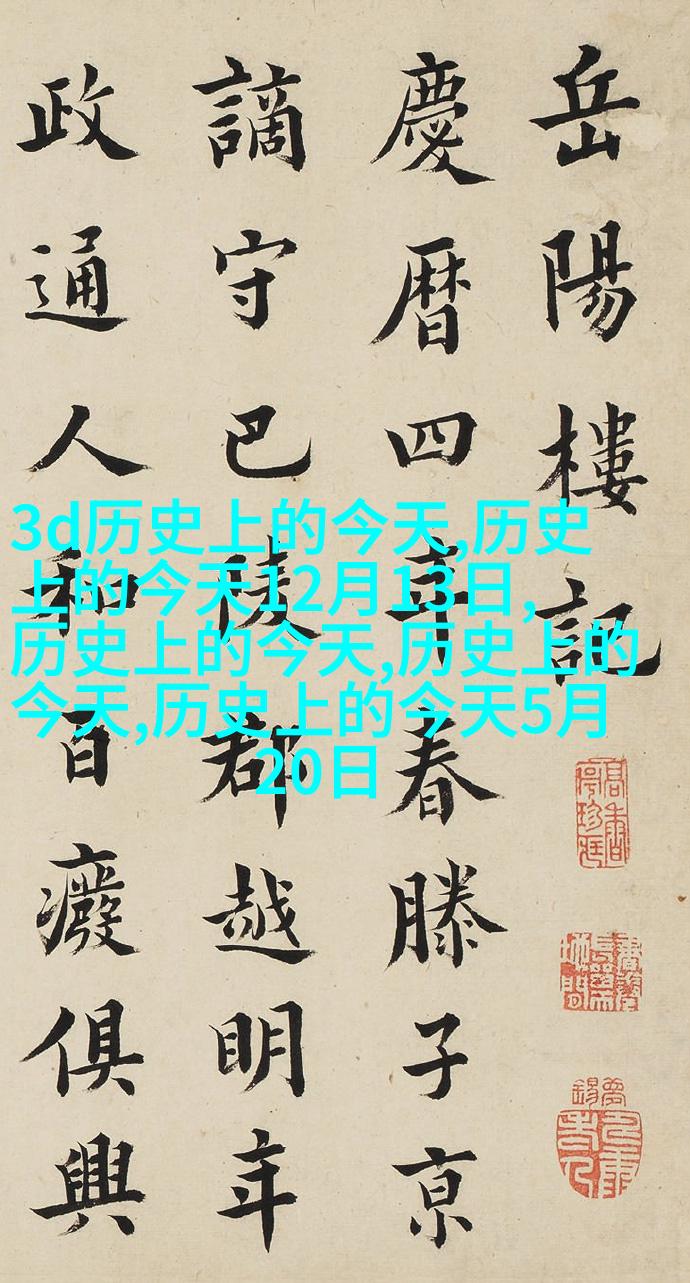 岳陽樓記
慶曆四年春滕子京
謫守巴陵郡越明年
政通人和百癈俱興
3d历史上的今天,历史
上的今天12月13日,
历史上的今天,历史上的
今天,历史上的今天5月
20日